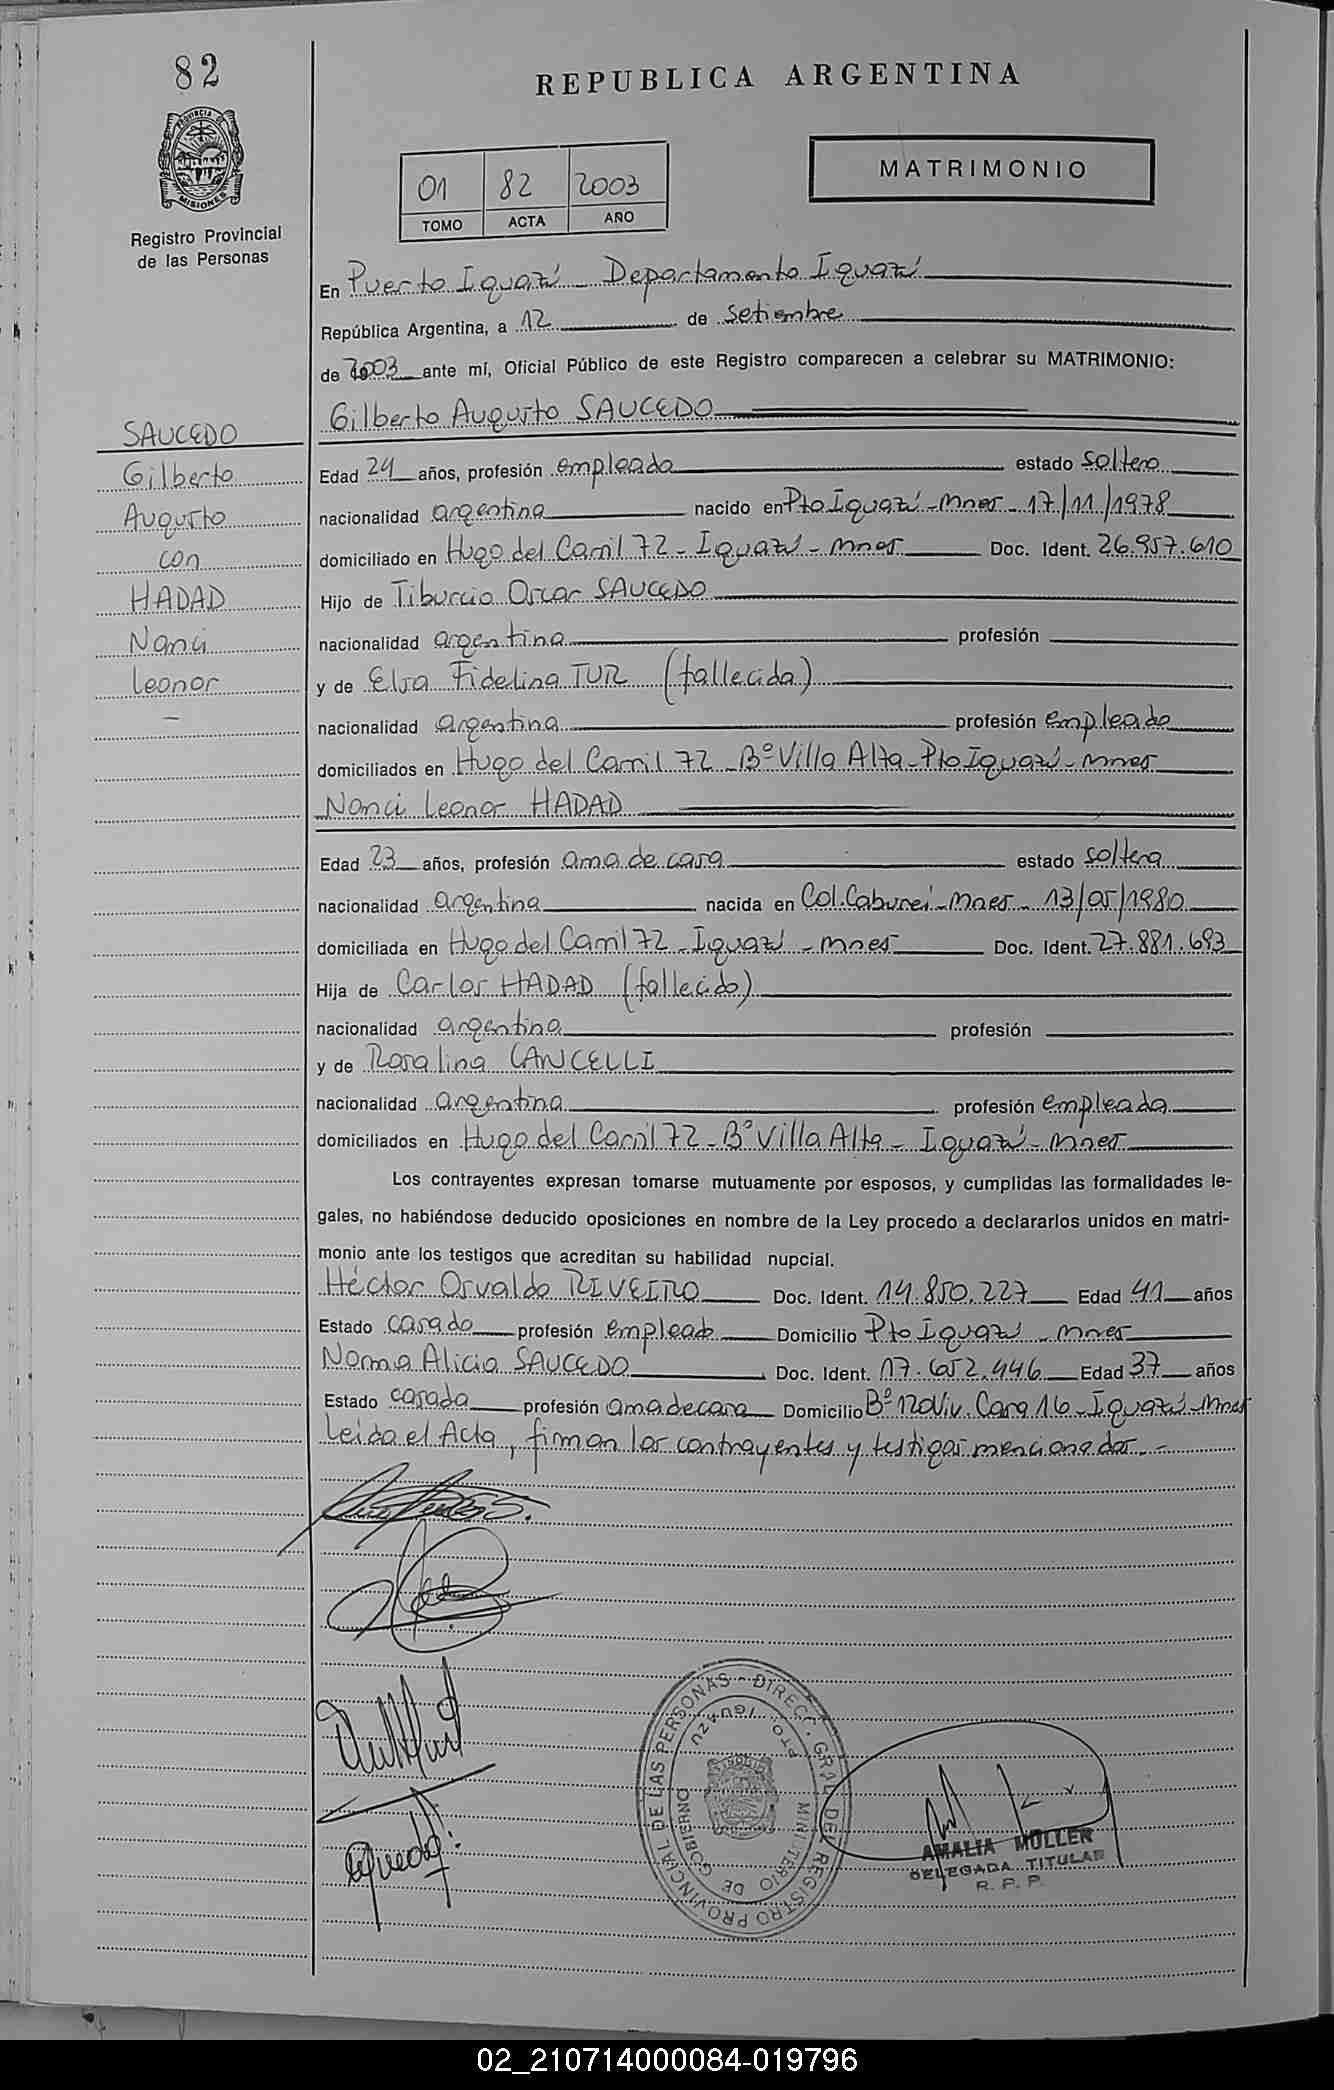 82
REPUBLICA ARGENTINA
PROVINCIA DE
MISIONES
Registro Provincial
de las Personas
01 82 2003
TOMO ACTA AÑO
MATRIMONIO
En Puerto Iguazú - Departamento Iguazú
República Argentina, a 12 de Setiembre
de 2003 ante mí, Oficial Público de este Registro comparecen a celebrar su MATRIMONIO:
Gilberto Augusto SAUCEDO
SAUCEDO
Gilberto
Augusto
con
HADAD
Nanci
Leonor
Edad 24 años, profesión empleado estado soltero
nacionalidad argentina nacido en Pto Iguazú - Mnes - 17/11/1978
domiciliado en Hugo del Carril 72 - Iguazú - Mnes Doc. Ident. 26.957.610
Hijo de Tiburcio Oscar SAUCEDO
nacionalidad argentina profesión
y de Elsa Fidelina TUR (fallecida)
nacionalidad argentina profesión empleado
domiciliados en Hugo del Carril 72 - Bº Villa Alta - Pto Iguazú - Mnes
Nanci Leonor HADAD
Edad 23 años, profesión ama de casa estado soltera
nacionalidad argentina nacida en Col. Caburei - Mnes - 13/05/1980
domiciliada en Hugo del Carril 72 - Iguazú - Mnes Doc. Ident. 27.881.693
Hija de Carlos HADAD (fallecido)
nacionalidad argentina profesión
y de Rosalina CANCELLI
nacionalidad argentina profesión empleada
domiciliados en Hugo del Carril 72 - Bº Villa Alta - Iguazú - Mnes
Los contrayentes expresan tomarse mutuamente por esposos, y cumplidas las formalidades le-
gales, no habiéndose deducido oposiciones en nombre de la Ley procedo a declararlos unidos en matri-
monio ante los testigos que acreditan su habilidad nupcial.
Héctor Osvaldo RIVEIRO Doc. Ident. 14.850.227 Edad 41 años
Estado casado profesión empleado Domicilio Pto Iguazú - Mnes
Norma Alicia SAUCEDO Doc. Ident. 17.652.446 Edad 37 años
Estado casada profesión ama de casa Domicilio Bº 120 Viv. Casa 16 - Iguazú - Mnes
Leída el Acta, firman los contrayentes y testigos mencionados.-
DIRECC. GRAL. DEL REGISTRO PROVINCIAL DE LAS PERSONAS
PTO. IGUAZU
MINISTERIO DE GOBIERNO
AMALIA MULLER
DELEGADA TITULAR
R. P. P.
02_210714000084-019796